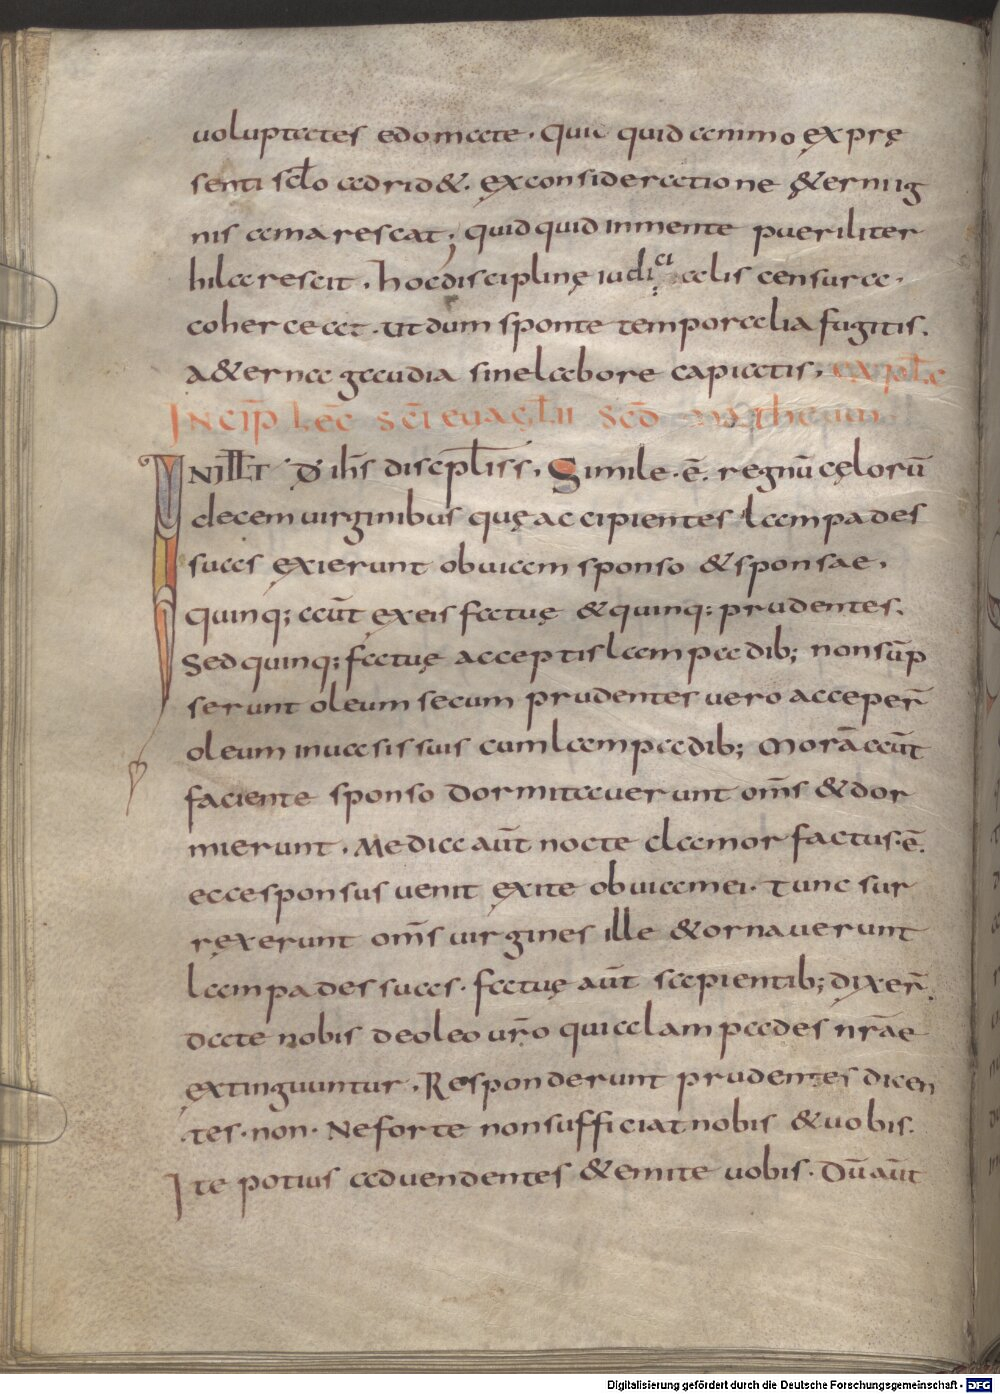 uoluptates edomate. Quic quid animo ex prę
senti sclo adrid&. ex consideratione &erni ig
nis amarescat; quid quid in mente pueriliter
hilarescit. hoc disciplinę iudicialis censura.
coherceat. Ut dum sponte temporalia fugitis.
a&erna gaudia sine labore capiatis. expl lc
Incip lec sci euagłii scd matheum
IN ILLT D ihs discplis s. Simile. ē. regnū cęlorū
decem uirginibus quę accipientes lampades
suas exierunt obuiam sponso & sponsae.
Quinq; aūt ex eis fatuę & quinq; prudentes.
Sed quinq; fatuę acceptis lampadib; non sūp
serunt oleum secum prudentes uero acceper̄
oleum in uasis suis cum lampadib; Morā aūt
faciente sponso dormitauerunt om̄s & dor
mierunt. Media aūt nocte clamor factus. ē.
ecce sponsus uenit exite obuiam ei. Tunc sur
rexerunt om̄s uirgines ille & ornauerunt
lampades suas. fatuę aūt sapientib; dixer̄.
date nobis de oleo ur̄o quia lampades nr̄ae
extinguuntur. Responderunt prudentes dicen
tes. non. Ne forte non sufficiat nobis & uobis.
Ite potius ad uendentes & emite uobis. Dū aūt
Digitalisierung gefördert durch die Deutsche Forschungsgemeinschaft - DFG